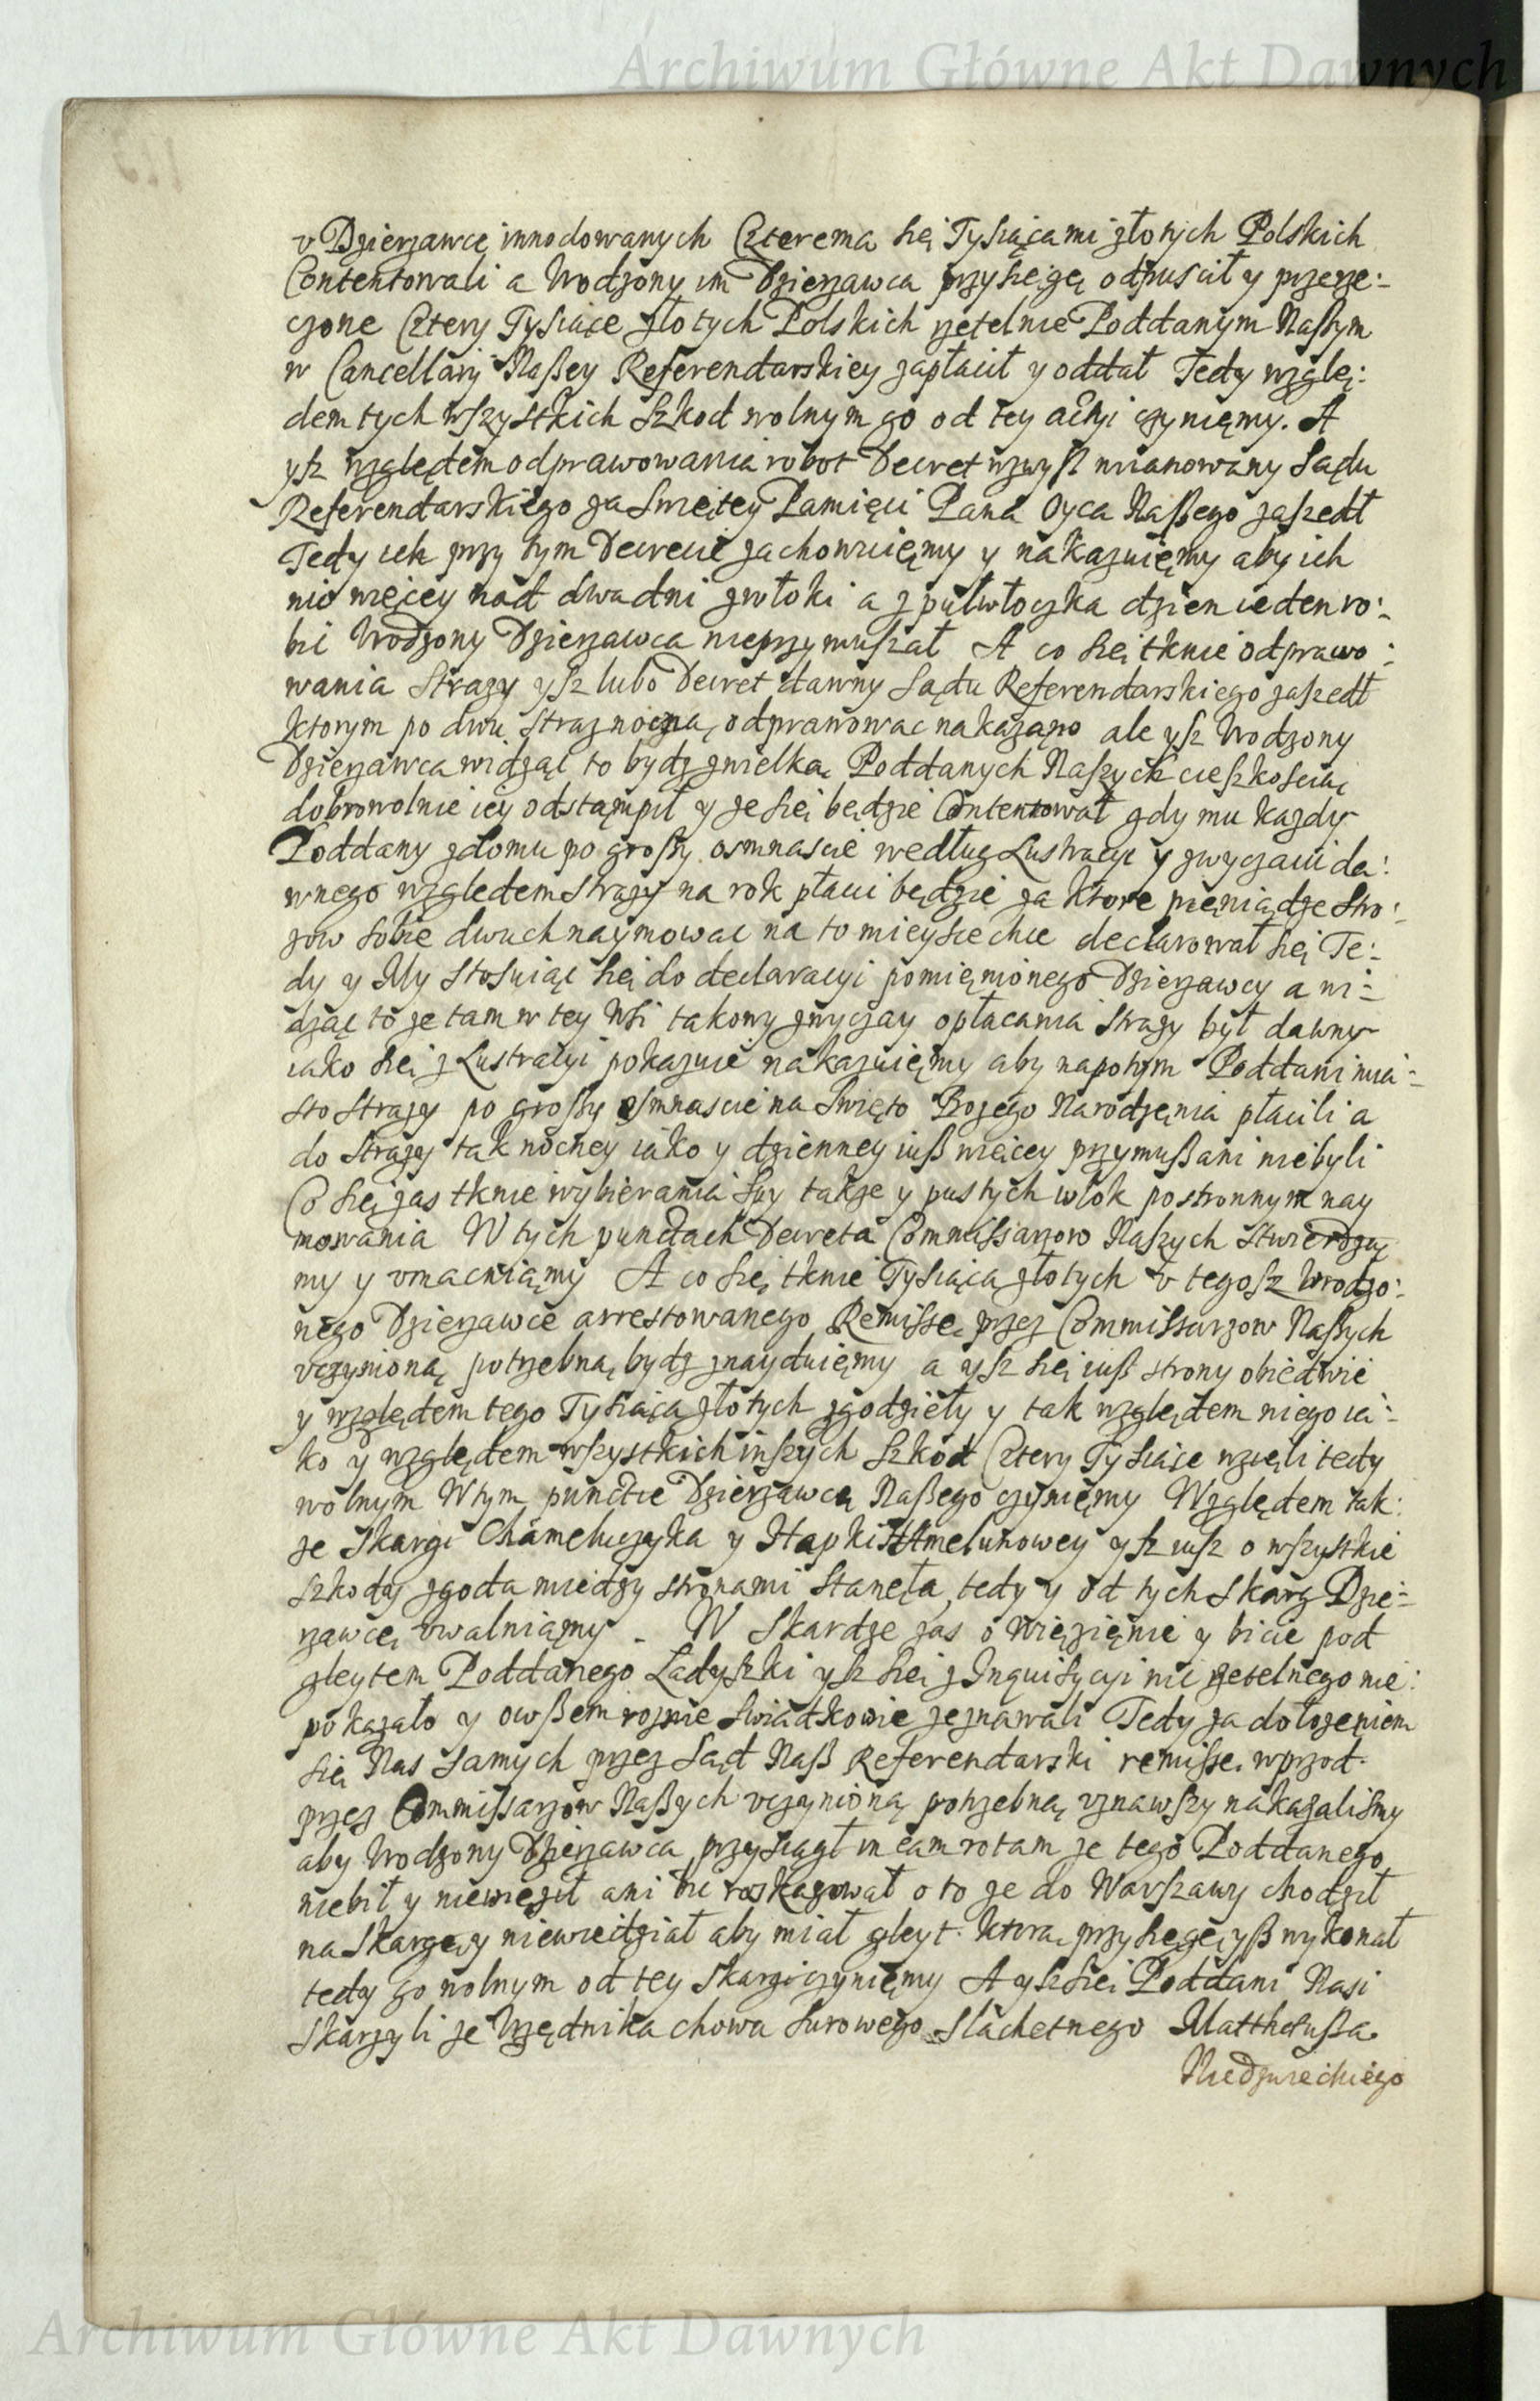 Archiwum Główne Akt Dawnych
v Dzierzawce innodowanych Czterema się Tysiącami złotych Polskich
Contentowali a Vrodzony im Dzierzawca przysięgę odpuscił y przerze-
czone Cztery Tysiące złotych Polskich rzetelnie Poddanym Naßym
w Cancellarij Naßey Referendarskiey zapłacił y oddał Tedy wzglę-
dem tych wszystkich szkod wolnym go od tey actyi czyniemy. A
ysz względem odprawowania robot Decret wzwyß mianowany Sądu
Referendarskiego za Swiętey Pamięci Pana Oyca Naßego zaszedł
Tedy ich przy tym Decrecie zachowuięmy y nakazuięmy aby ich
nic więcey nad dwa dni zwłoki a z pułwłoczka dzien ieden ro-
bić Vrodzony Dzierzawca nieprzymuszał A co się tknie odprawo-
wania Strazy ysz lubo Decret dawny Sądu Referendarskiego zaszedł
ktorym po dwu straz nocną odprawowac nakazano ale ysz Vrodzony
Dzierzawca widząc to bydz z wielką Poddanych Naszych cięszkoscią
dobrowolnie iey odstąmpił y ze się będzie Contentował gdy mu kazdy
Poddany z domu po groszy osmnascie według Lustracyi y zwyczaiu da-
wnego względem strazy na rok płacić będzie za ktore pieniądze stro-
zow sobie dwuch naymowac na to mieysce chce declarował się Te-
dy y My stosuiąc się do declaracyi pomięnionego Dzierzawcy a wi-
dząc to ze tam w tey Wsi takowy zwyczay opłacania strazy był dawny
iako się z Lustracyi pokazuie nakazuięmy aby napotym Poddani mia-
sto strazy po groszy osmnascie na Swięto Bozego Narodzęnia płacili a
do strazy tak nocney iako y dzienney iuß więcey przymußani niebyli
Co się zas tknie wybierania Spy takze y pustych włok postronnym nay
mowania W tych punctach Decreta Commissarzow Naszych stwierdzą
my y vmacniąmy A co się tknie Tysiąca złotych v tegosz Vrodzo-
nego Dzierzawce arrestowanego Remissę przez Commissarzow Naßych
vczynioną potrzebną bydz znayduięmy a ysz się iuß strony obiedwie
y względem tego Tysiąca złotych zgodzieły y tak względem niego ia-
ko y względem wszystkich inszych szkod Cztery Tysiące wzięli tedy
wolnym W tym punctie Dzierzawcę Naßego czynięmy Względem tak-
ze Skargi Chameluczyka y Hapki Hmelunowey ysz iusz o wszystkie
szkody zgoda miedzy stronami stanęła tedy y od tych skarg Dzie-
rzawcę vwalniąmy. W skardze zas o więzięnie y bicie pod
gleytem Poddanego Ladyszki ysz się z Inquisycyi nic rzetelnego nie
pokazało y owßem roznie swiadkowie zeznawali Tedy za dołozęniem
się Nas Samych przez Sąd Naß Referendarski remissę wprzod
przez Commissarzow Naßych vczynioną potrzebną vznawszy nakazalismy
aby Vrodzony Dzierzawca przysiągł in eam rotam ze tego Poddanego
niebił y niewięził ani bić roskazował o to ze do Warszawy chodził
na skargę y niewiedział aby miał gleyt. ktorą przysięgę yß wykonał
tedy go wolnym od tey skargi czynięmy A ysz się Poddani Nasi
skarzyli ze Vrzędnika chowa surowego Slachetnego Mattheußa
Niedzwieckiego
Archiwum Główne Akt Dawnych